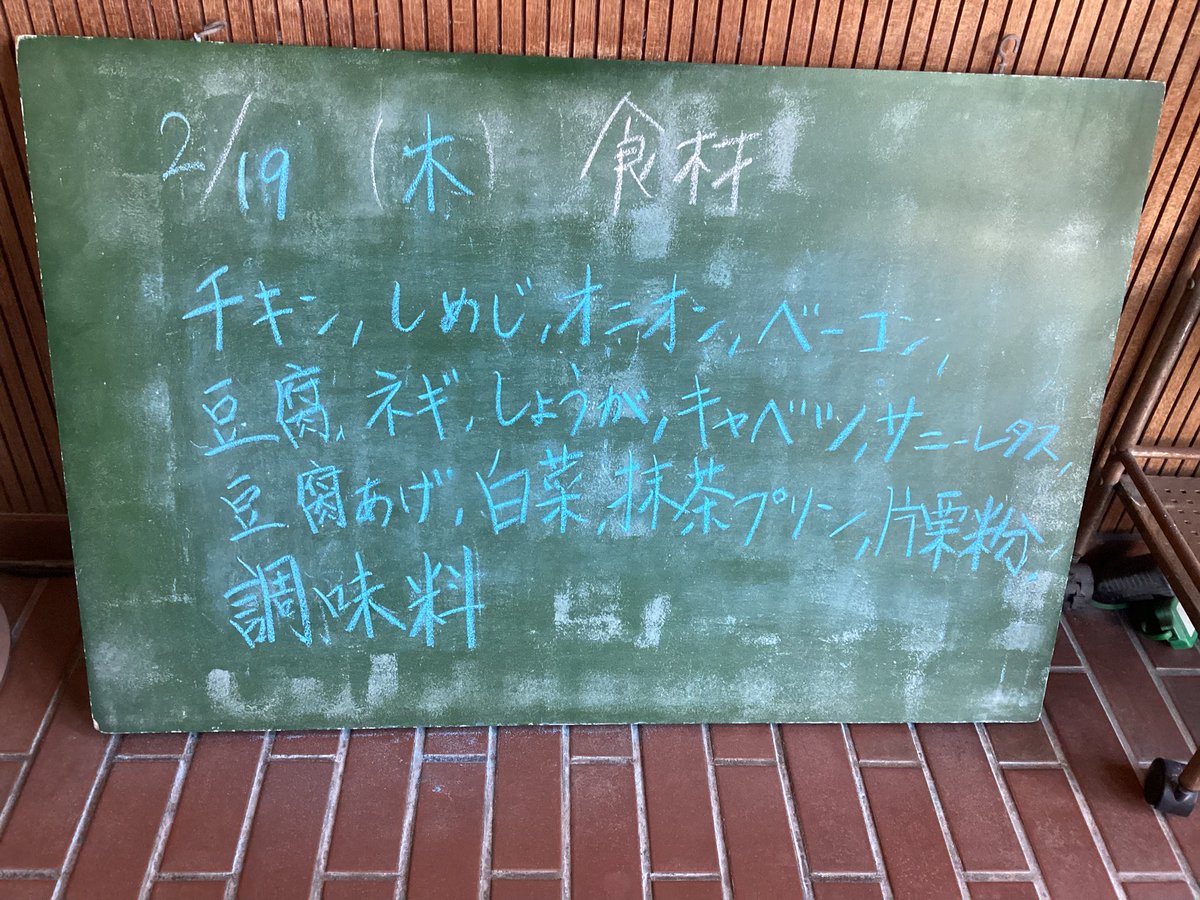 2/19 (木) 食材
チキン, しめじ, オニオン, ベーコン,
豆腐, ネギ, しょうが, キャベツ, サニーレタス,
豆腐あげ, 白菜, 抹茶プリン, 片栗粉,
調味料